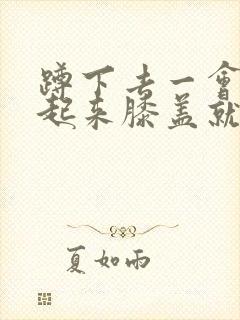 蹲下去一會
起来膝盖就
夏如雨